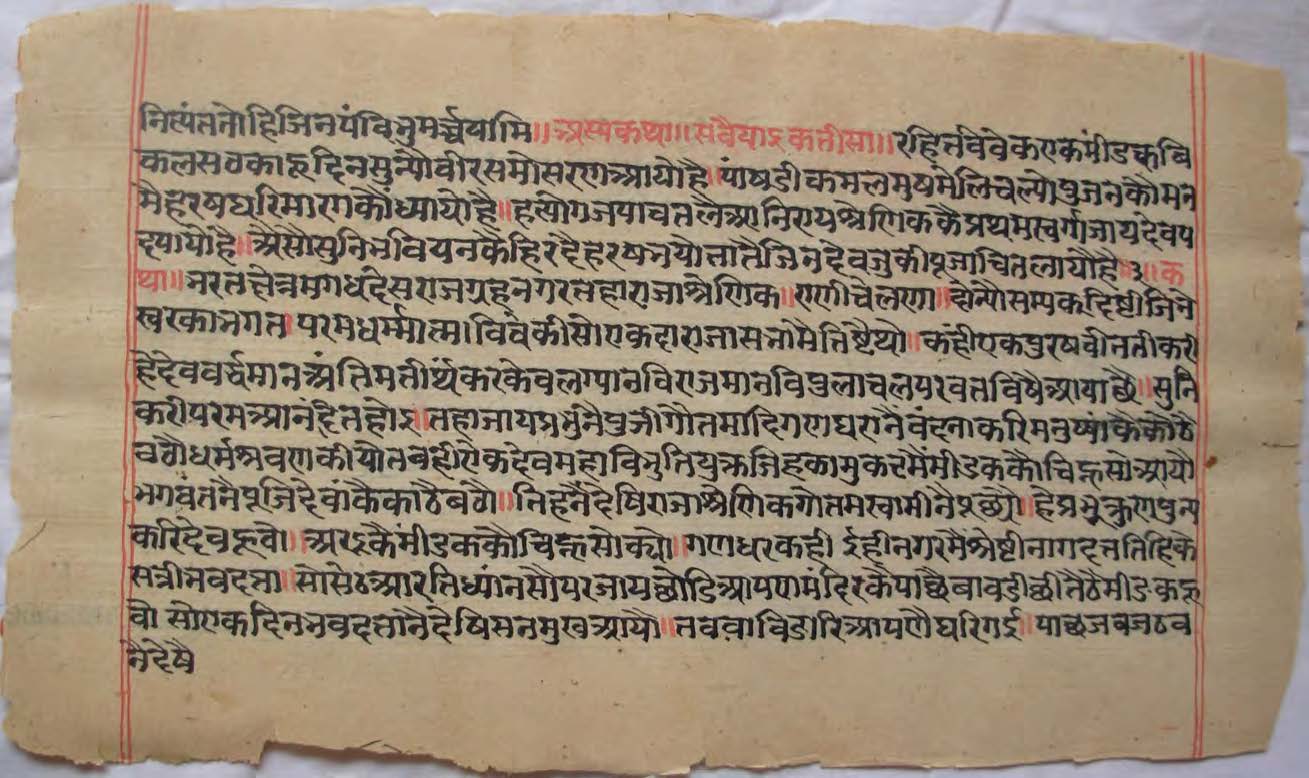 नित्यंततोहिजिनपंविभुमर्च्चयामि॥अस्यकथा॥सवैयाइकतीसा॥रहितविवेकएकमींडकबि
कलसठकाहूदिनसुन्यौवीरसमोसरणआयोहै॥पांषडीकमलमुषमेलिचल्योपुजनकौमन
मैहरषधरिमारगकौध्यायोहै॥हस्तीगजपावतलैआनिरायश्रेणिककैप्रथमस्वर्गाजायदेवप
दपायोहै॥अैसौसुनिभवियनकैहिरदैहरषभयोतातैजिनदेवजुकीपूजाचितलायौहै॥३॥क
था॥भरतक्षेत्रमगधदेसराजग्रहनगरतहाराजाश्रेणिक॥राणीचेलणा॥दोन्यौसम्यकदिष्टीजिने
स्वरकाभगत॥परमधर्म्मात्माविवेकीसोएकदाराजासभामैतिष्टैथो॥कंहीएकपुरषवीनतीकरी
हेदेववर्द्धमानअंतिमतीर्थंकरकेवलग्यानविराजमानविपुलाचलपरवतविषैआयाछै॥सुनि
करीपरमआनंदितहोइ॥तहाजायप्रभुंनैपुजीगौतमादिगणधरानैवंदनाकरिमनुष्यांकैकोठै
बठौधर्मश्रवणकीयौतबहीएकदेवमहाविभुतियुक्तजिहकामुकटमैंमीडककौचिह्नसोआयौ
भगवंतनैपूजिदेवांकैकाठैबठौ॥तिहनैदेषिराजाश्रेणिकगोतमस्वामीनैपूछ्यौ॥हेप्रभुकुणपुन्य
करिदेवहूवो॥अरइकैमींडककौचिह्नसोक्यो॥गणधरकहीईहीनगरमैश्रेष्टीनागदत्ततिहिकै
सत्रीभवदत्ता॥सोसेठआरतिध्यांनसौपरजायछोडिआपणामंदिरकैपाछैबावडीछीतैठैमीडकहू
वो सोएकदिनभवदत्तानैदेषिसनमुखआयौ॥तबवाविडारिआपणैघरिगई॥पाछजबजठव
नैदेषै